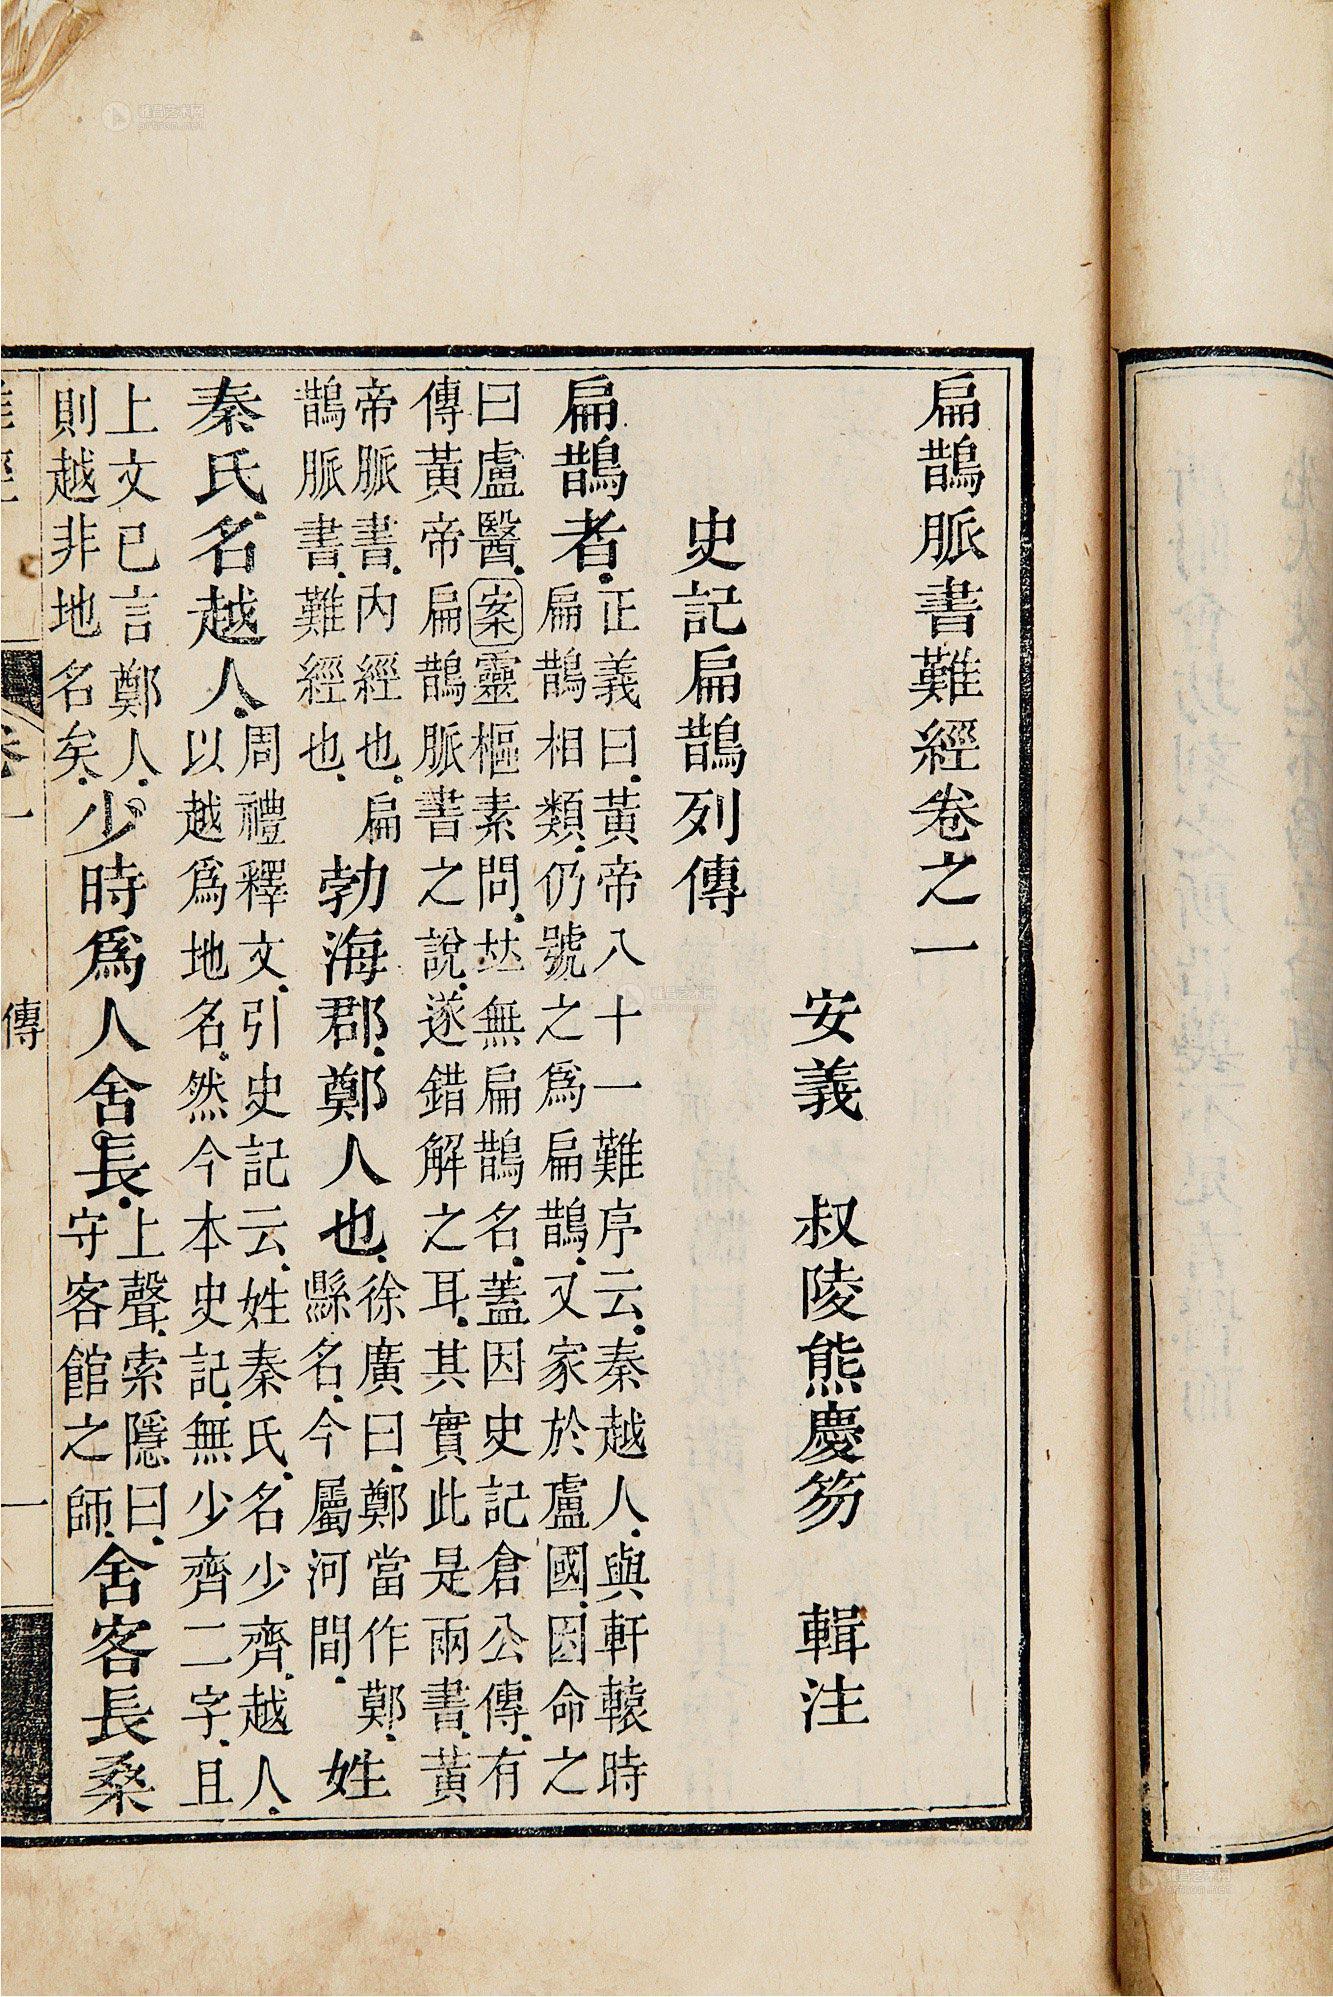 扁鵲脈書難經卷之一
安義　叔陵熊慶笏　輯注
史記扁鵲列傳
扁鵲者.
正義曰.黃帝八十一難序云.秦越人.與軒轅時
扁鵲相類.仍號之爲扁鵲.又家於盧國.因命之
曰盧醫.案靈樞素問.𠀤無扁鵲名.蓋因史記倉公傳.有
傳黃帝扁鵲脈書之說.遂錯解之耳.其實此是兩書.黃
帝脈書.內經也.扁
鵲脈書.難經也.
勃海郡.鄭人也.
徐廣曰.鄭當作鄚.
縣名.今屬河間.
姓
秦.氏.名越人.
周禮釋文.引史記云.姓秦氏.名少齊.越人.
以越爲地名.然今本史記.無少齊二字.且
上文已言鄭人.
則越非地名矣.
少時爲人舍長.
上聲.索隱曰.
守客館之師.
舍客長桑
卷一
傳
一
雅昌艺术网
artron.net
雅昌艺术网
artron.net
雅昌艺术网
artron.net